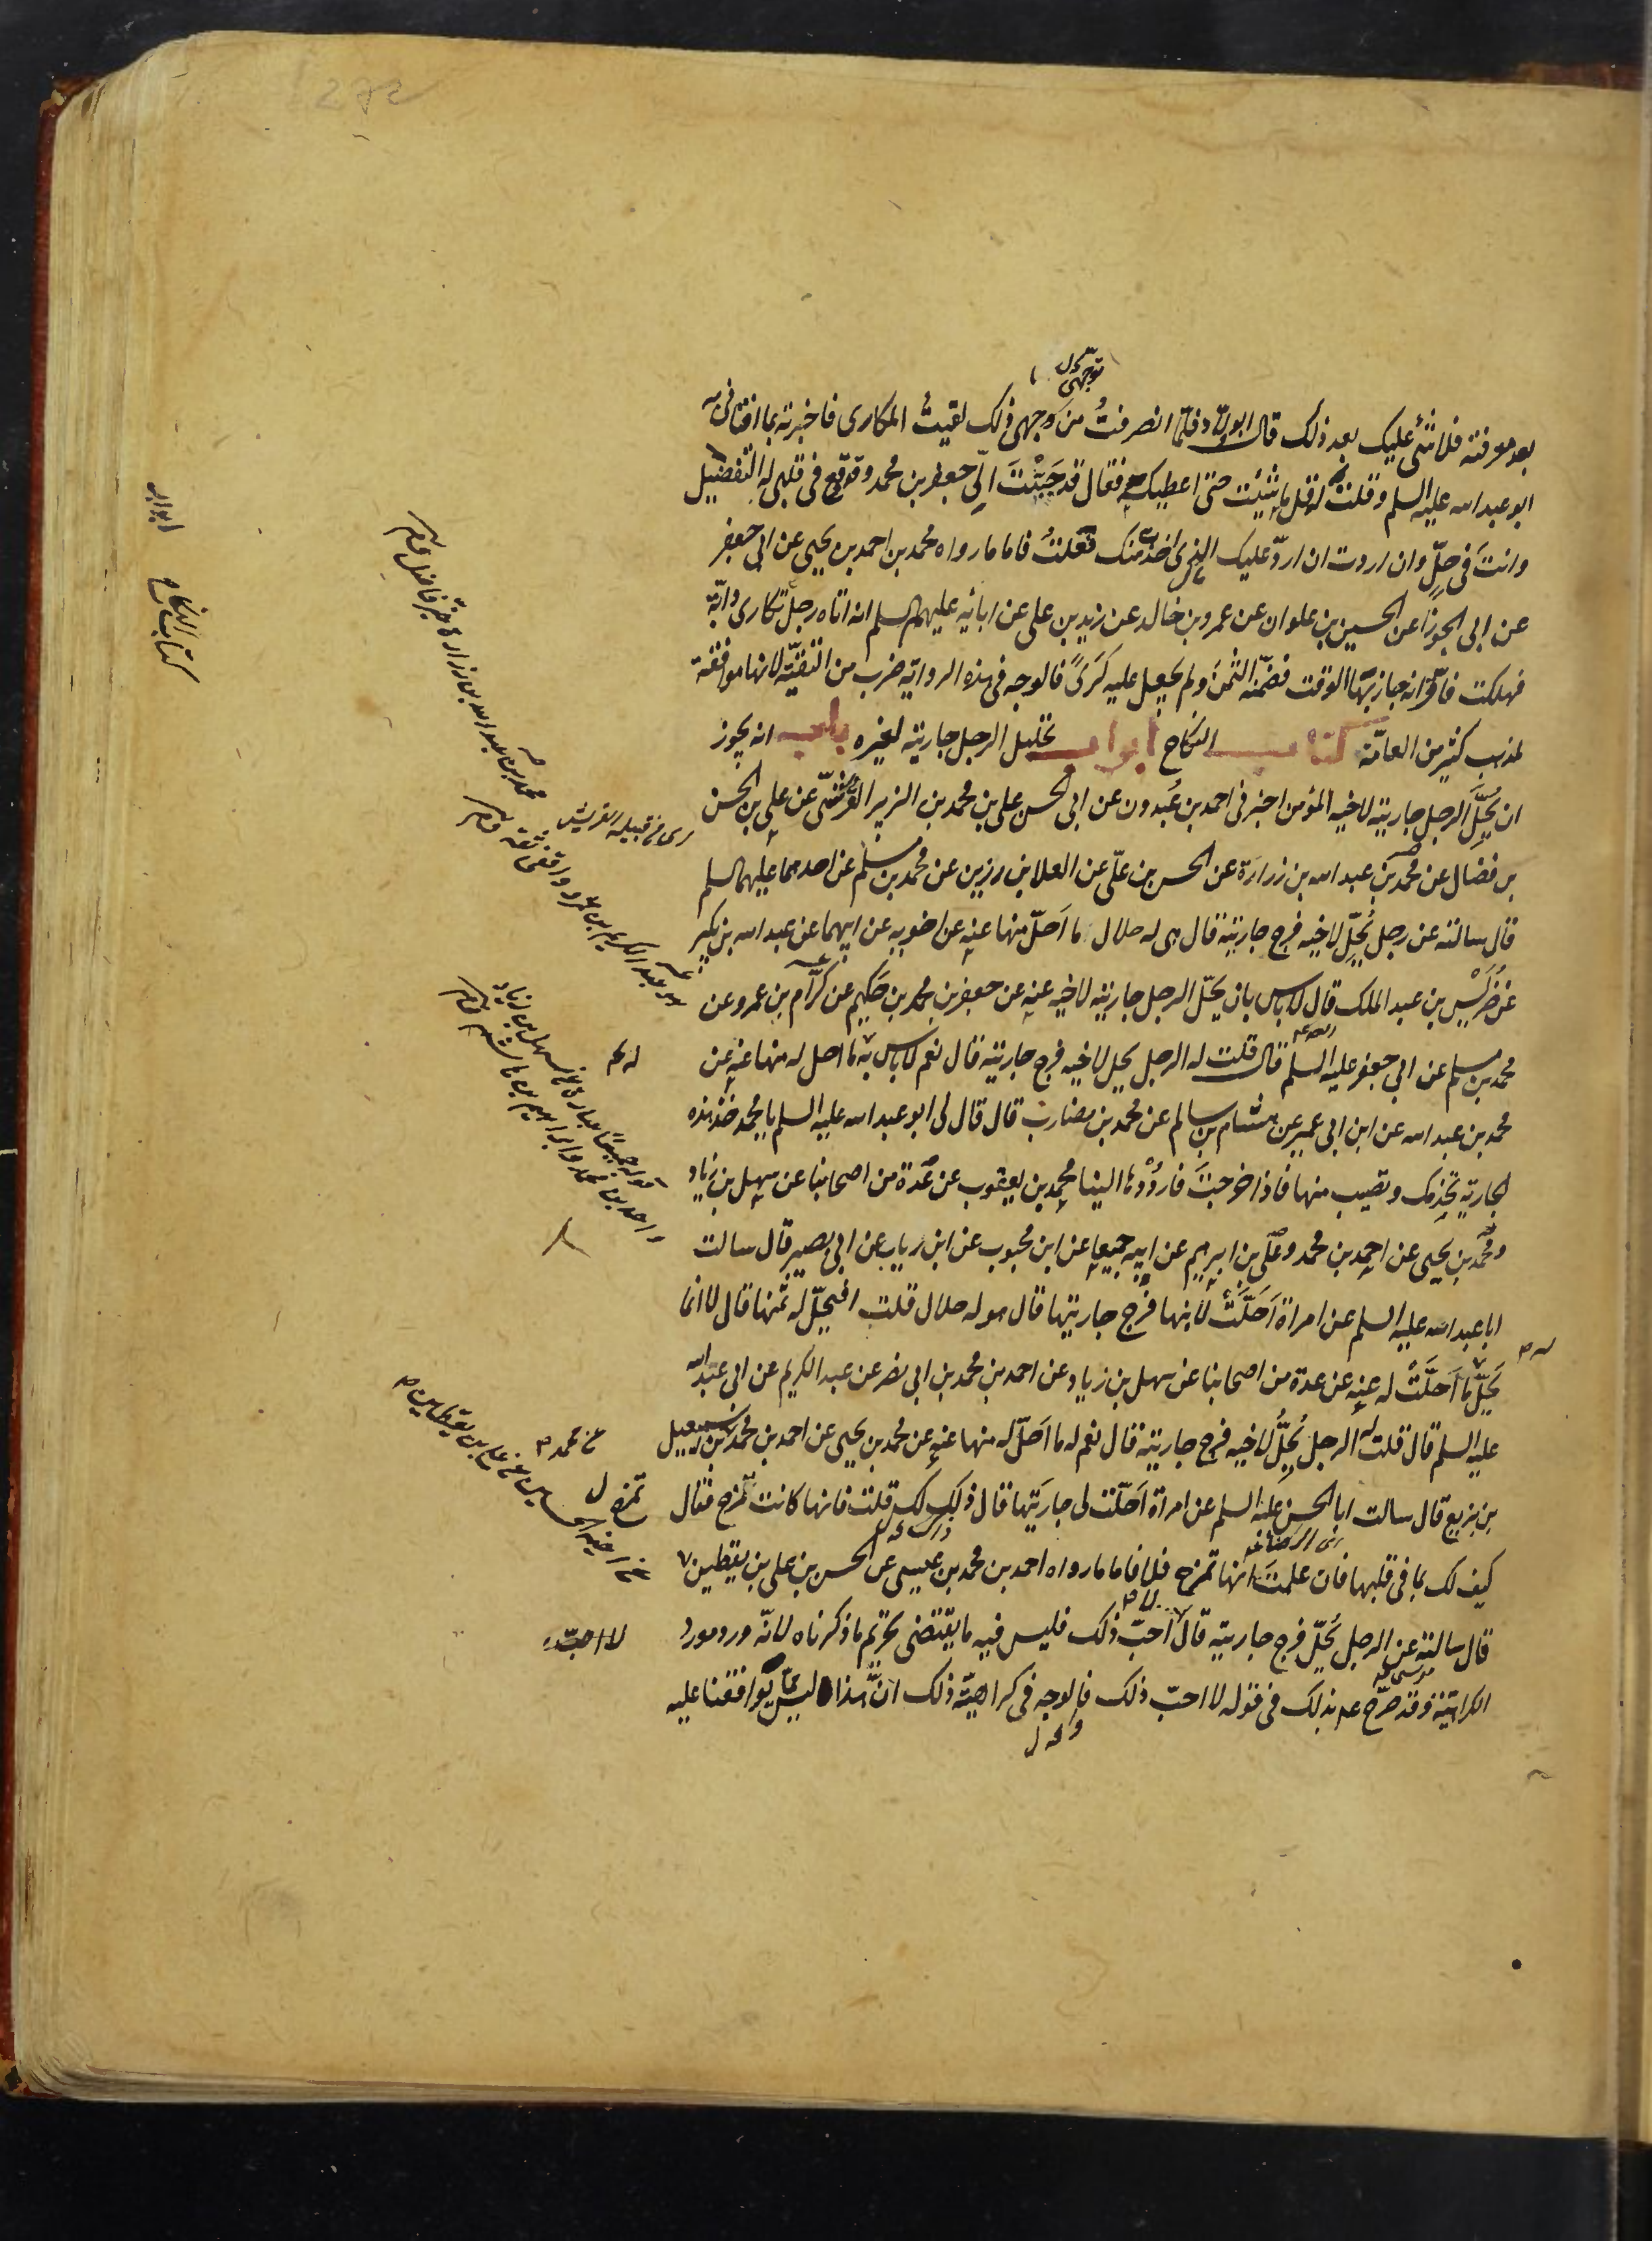 توجهى ل
بعد معرفته فلا شئ عليك بعد ذلك قال ابو ولاد فلمّا انصرفتُ من وجهى ذلك لقيتُ المكارى فاخبرته بما افتانى به
ابو عبد الله عليه السلم وقلتُ له قل ما شئت حتى اعطيكه فقال قد حَبَّبْتَ الىّ جعفر بن محمد ووقع فى قلبى له التفضيل
وانتَ فى حِلٍّ وان اردت ان اردّ عليك الذى اخذته منك فعلتُ فاما ما رواه محمد بن احمد بن يحيى عن ابى جعفر
عن ابى الجوزا عن الحسين بن علوان عن عمرو بن خالد عن زيد بن على عن ابائه عليهم السلم انه اتاه رجل تكارى دابّة
فهلكت فاقرّ انه جاز بها الوقت فضمّنه الثمنَ ولم يجعل عليه كَرَىً فالوجه فى هذه الرواية ضرب من التقيّة لانها موافقة
لمذهب كثير من العامّة كتاب النكاح ابواب تحليل الرجل جاريته لغيره باب انه يجوز
ان يُحِلَّ الرجل جاريته لاخيه المؤمن اخبرنى احمد بن عبدون عن ابى الحسن على بن محمد بن الزبير القرشىّ عن على بن الحسن
بن فضال عن محمد بن عبد الله بن زرارة عن الحسن بن علىّ عن العلا بن رزين عن محمد بن مسلم عن احدهما عليهما السلم
قال سالته عن رجل يُحِلّ لاخيه فرج جاريته قال هى له حلال ما اَحلّ منها عنه عن اخويه عن ابيهما عن عبد الله بن بكير
عن ضُرَيْس بن عبد الملك قال لا باس بان يحلّ الرجل جاريته لاخيه عنه عن جعفر بن محمد بن حكيم عن كرّام بن عمرو عن
محمد بن مسلم عن ابى جعفر عليه السلم قال قلت له الرجل يحل لاخيه فرج جاريته قال نعم لا باس به ما احل له منها عنه عن
محمد بن عبد الله عن ابن ابى عمير عن هشام بن سالم عن محمد بن مضارب قال قال لى ابو عبد الله عليه السلم يا محمد خذ هذه
الجارية تخدمك وتصيب منها فاذا خرجتَ فاردُدْها الينا محمد بن يعقوب عن عدّة من اصحابنا عن سهل بن زياد
ومحمد بن يحيى عن احمد بن محمد وعلى بن ابرهيم عن ابيه جميعا عن ابن محبوب عن ابن رياب عن ابى بصير قال سالت
ابا عبد الله عليه السلم عن امراة اَحَلَّتْ لابنها فرج جاريتها قال هو له حلال قلت افيحلّ له ثمنها قال لا انما
يَحِلّ ما اَحَلَّتْ له عنه عن عدة من اصحابنا عن سهل بن زياد عن احمد بن محمد بن ابى نصر عن عبد الكريم عن ابى عبد الله
عليه السلم قال قلت له الرجل يُحِلُّ لاخيه فرج جاريته قال نعم له ما اَحَلّ له منها عنه عن محمد بن يحيى عن احمد بن محمد بن اسمعيل
بن بزيع قال سالت ابا الحسن عليه السلم عن امراة اَحَلّت لى جاريَتها قال ذلك لك قلت فانها كانت تمزح فقال
كيف لك بما فى قلبها فان علمتَ انها تمزح فلا فاما ما رواه احمد بن محمد بن عيسى عن الحسن بن على بن يقطين
قال سالته عن الرجل يُحِلّ فرج جاريته قال لا احبّ ذلك فليس فيه ما يقتضى تحريم ما ذكرناه لانّه ورد مورد
الكراهيّة وقد صرّح عم بذلك فى قوله لا احبّ ذلك فالوجه فى كراهيّة ذلك انّ هذا ليس ممّا يوافقنا عليه
ابواب
كتاب النكاح
محمد بن عبد الله بن زرارة خيّر فاضل
اى من قبيلة القريش
هو عبد الكريم بن عمرو واقفى ثقة
قوله جميعًا عبارة عن سهل بن زياد
واحمد بن محمد وابراهيم بن هاشم
عن محمد
تمزح ل
عن اخيه الحسين عن على بن يقطين
لا احبّ